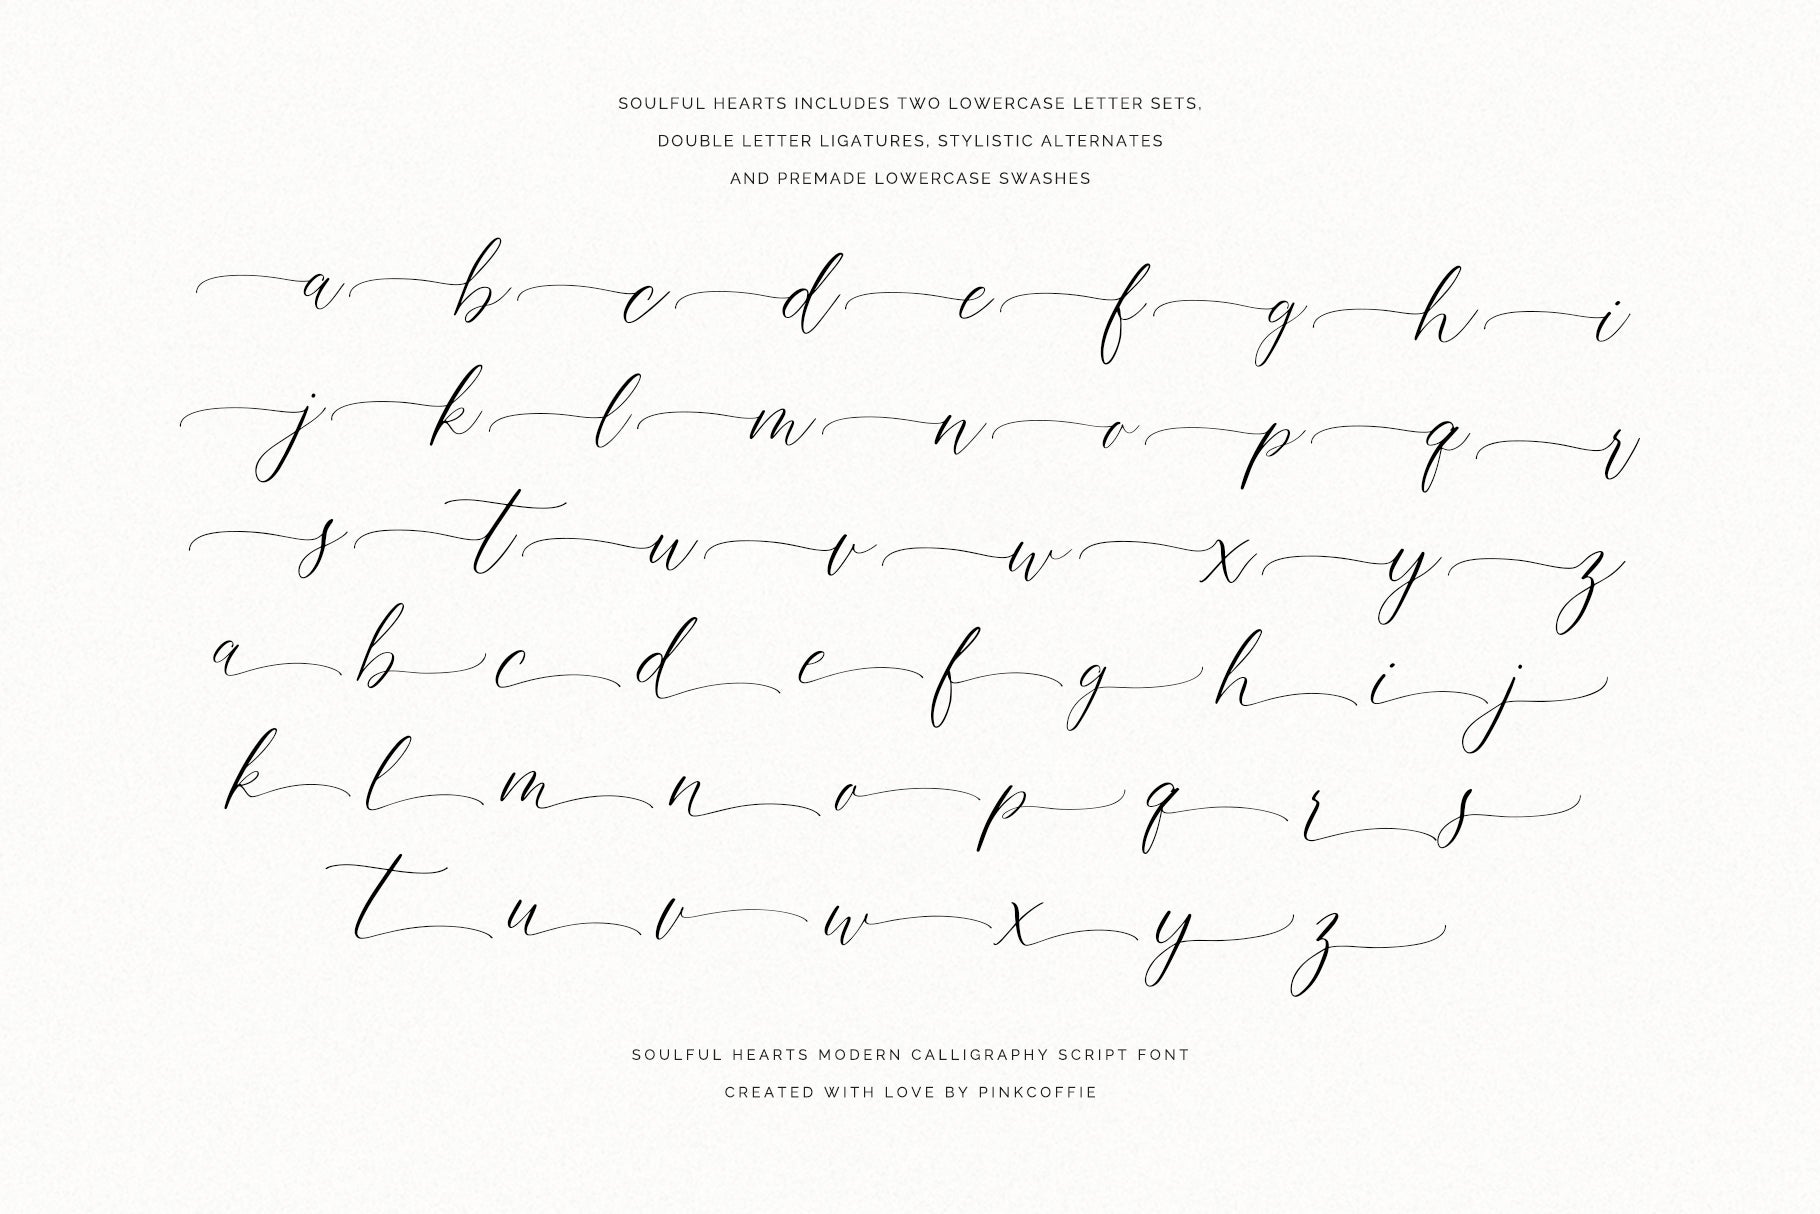 SOULFUL HEARTS INCLUDES TWO LOWERCASE LETTER SETS,
DOUBLE LETTER LIGATURES, STYLISTIC ALTERNATES
AND PREMADE LOWERCASE SWASHES
a b c d e f g h i
j k l m n o p q r
s t u v w x y z
a b c d e f g h i j
k l m n o p q r s
t u v w x y z
SOULFUL HEARTS MODERN CALLIGRAPHY SCRIPT FONT
CREATED WITH LOVE BY PINKCOFFIE